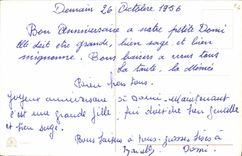 Demain 26 Octobre 1956
Bon Anniversaire a notre petite Domi
Elle doit être grande, bien sage et bien
mignonne. Bons baisers a vous tous
La tante, la
bien pres tous.
Joyeux anniversaire si Domi. Maintenant
c'est une grande fille qui doit être bien gentille
et bien sage.
Bons baisers à tous. grosses bises à
Domi.